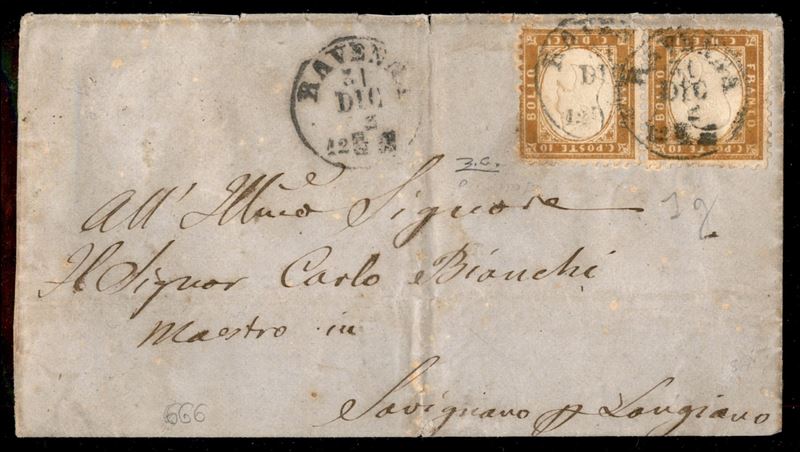 RAVENNA
31
DIC
12 M
FRANCO
BOLLO
C. POSTE 10
DIECI
FRANCO
BOLLO
C. POSTE 10
RAVENNA
31
DIC
3.C.
19
All' Illmo Signore
Il Signor Carlo Bianchi
Maestro in
Savignano p Longiano
666